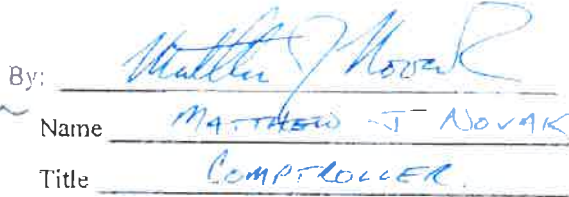 By: Matthew J Novak
Name MATTHEW J NOVAK
Title COMPTROLLER.